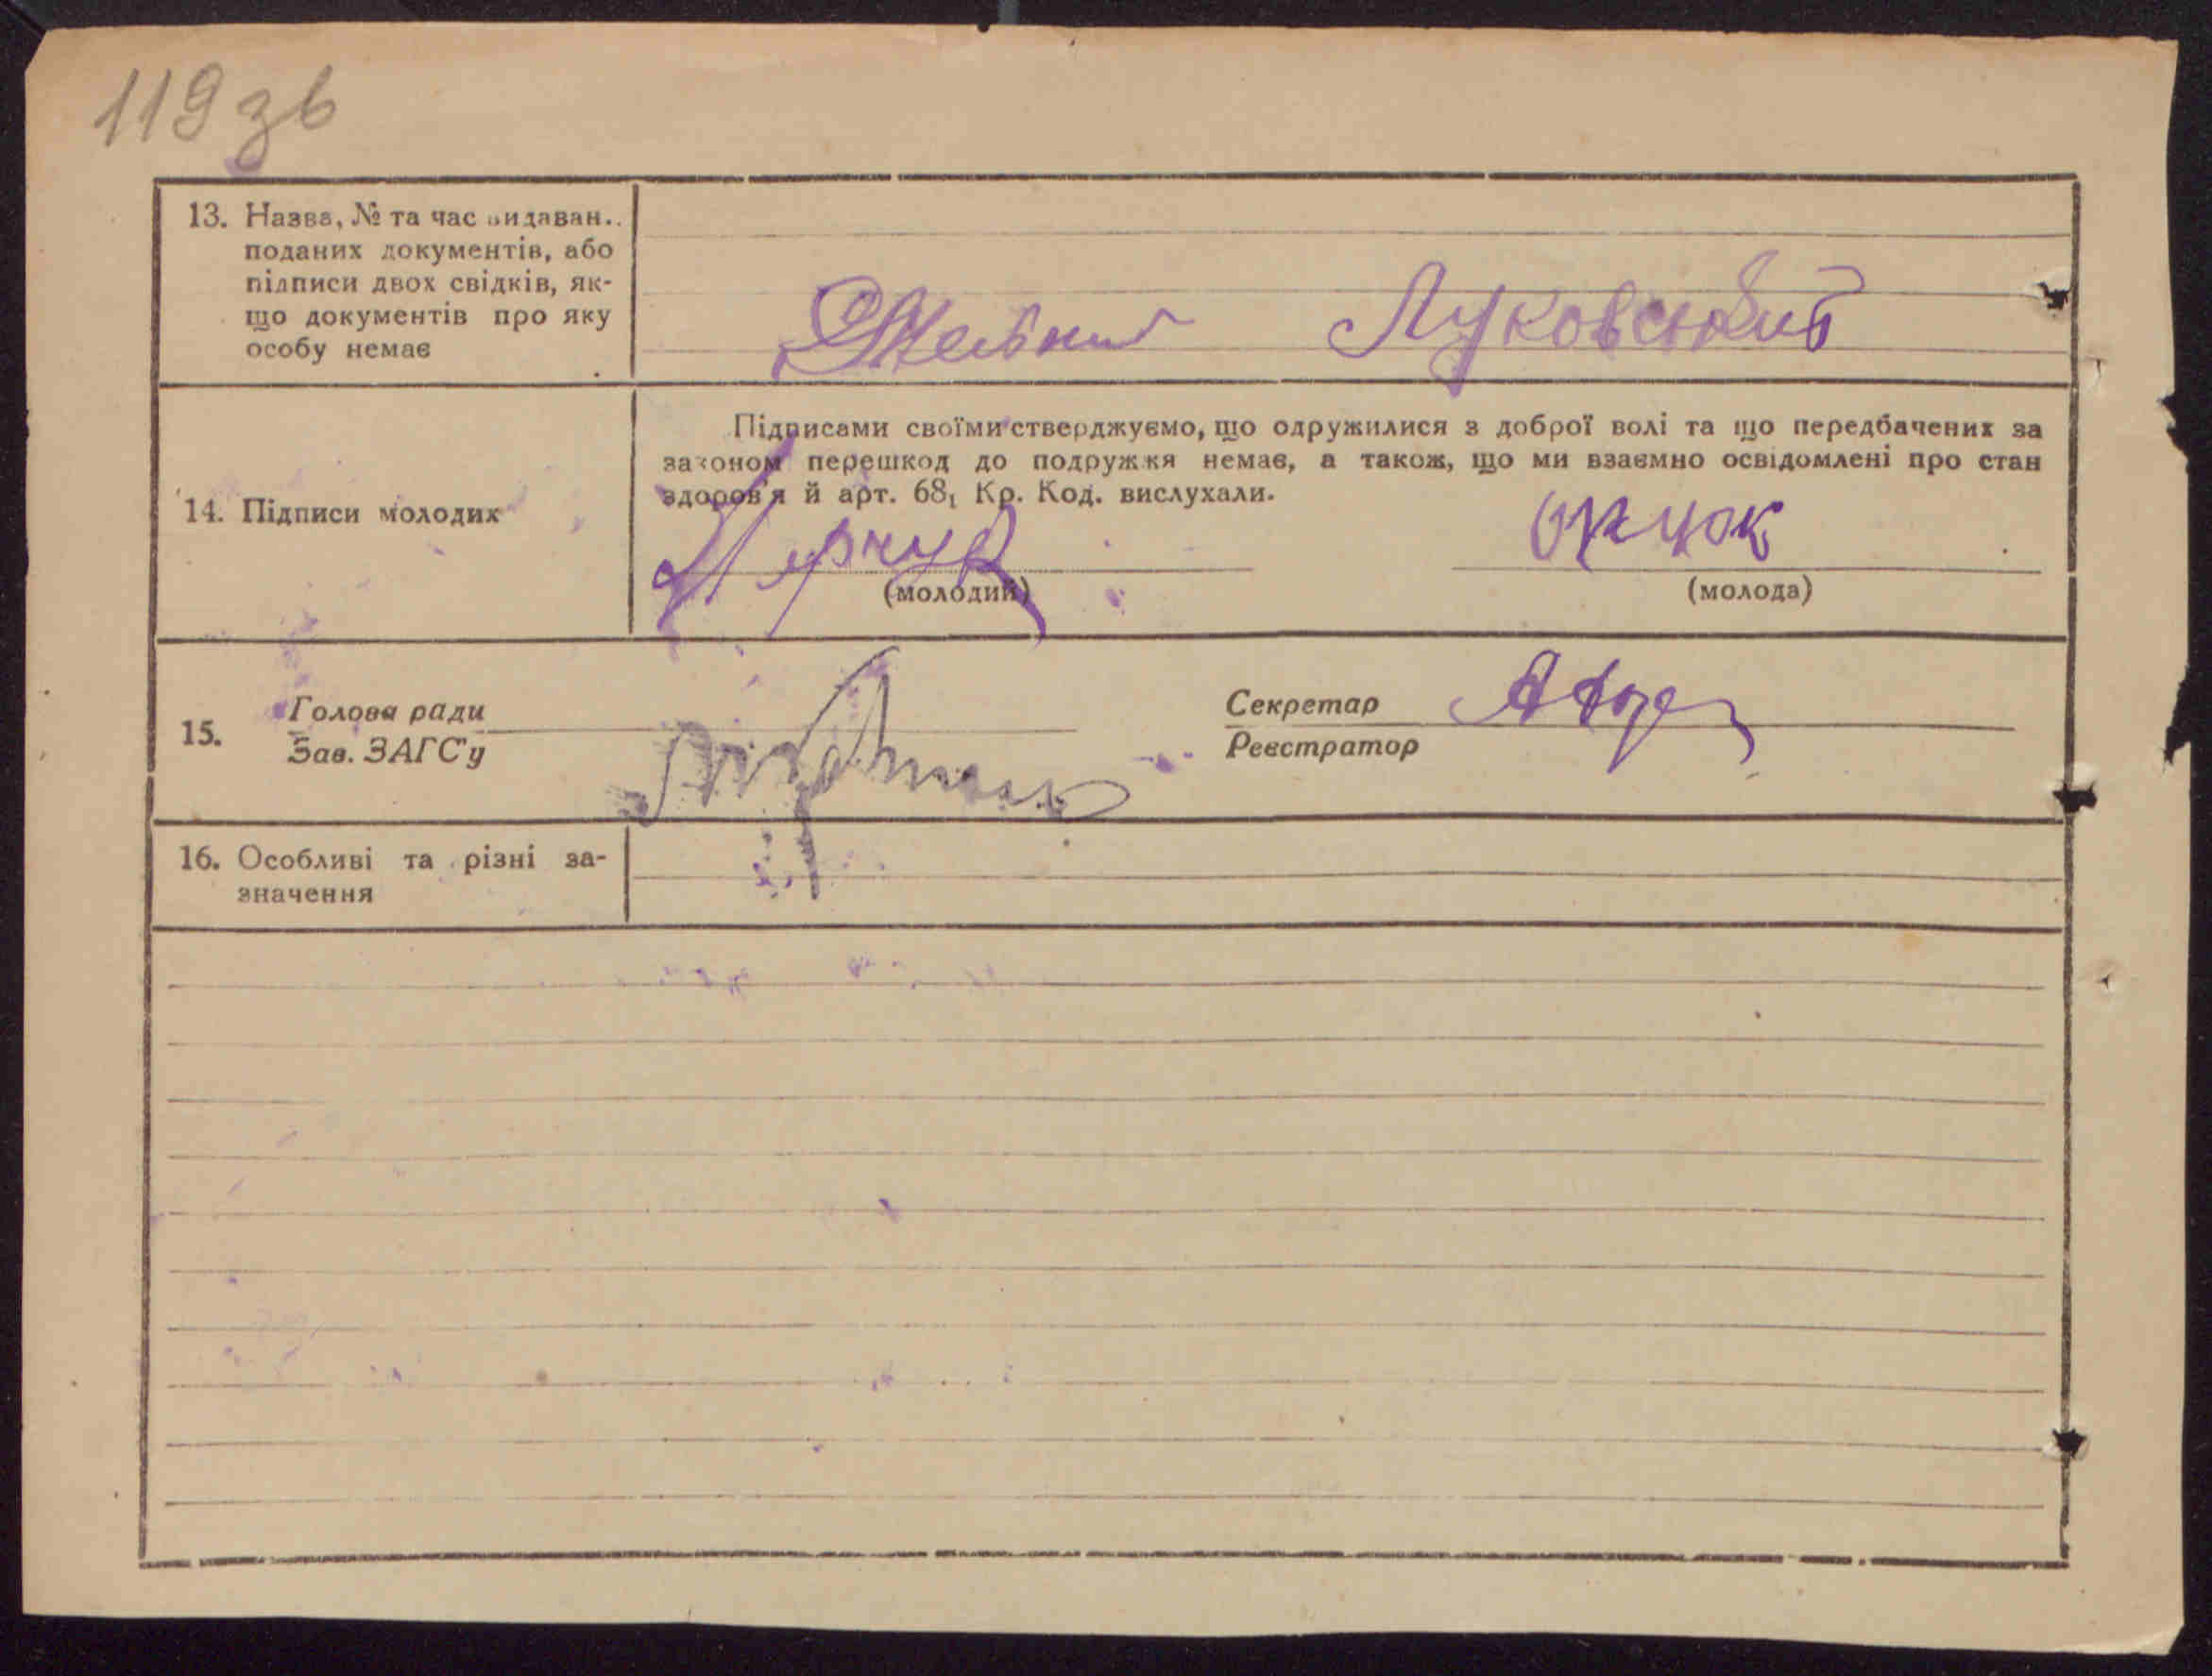 119 зв
13. Назва, № та час видаван..
поданих документів, або
підписи двох свідків, як-
що документів про яку
особу немає
Луковський
Підписами своїми стверджуємо, що одружилися з доброї волі та що передбачених за
законом перешкод до подружжя немає, а також, що ми взаємно освідомлені про стан
здоров'я й арт. 68₁ Кр. Код. вислухали.
14. Підписи молодих
(молодий)
(молода)
15.
Голова ради
Зав. ЗАГС'у
Секретар
Реєстратор
16. Особливі та різні за-
значення